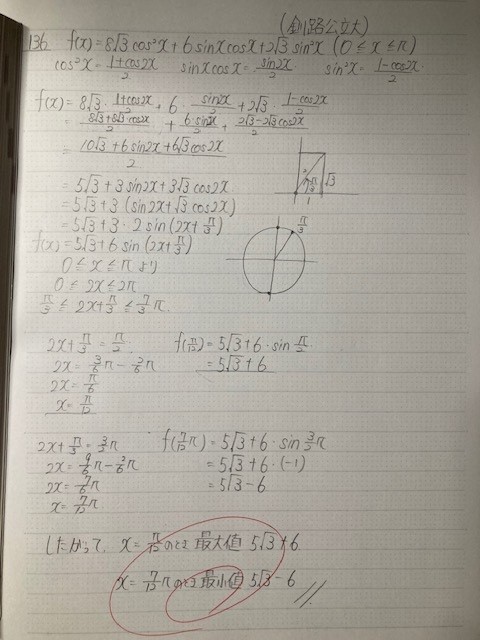 (釧路公立大)
136 f(x)=8√3 cos²x+6 sinx cosx+2√3 sin²x (0≦x≦π)
cos²x=1+cos2x/2 sinxcosx=sin2x/2 sin²x=1-cos2x/2
f(x)=8√3・1+cos2x/2+6・sin2x/2+2√3・1-cos2x/2
=8√3+8√3cos2x/2+6・sin2x/2+2√3-2√3cos2x/2
=10√3+6sin2x+6√3cos2x/2
=5√3+3sin2x+3√3cos2x
=5√3+3(sin2x+√3cos2x)
=5√3+3・2sin(2x+π/3)
f(x)=5√3+6sin(2x+π/3)
2 π/3 √3
1
π/3
0≦x≦πより
0≦2x≦2π
π/3≦2x+π/3≦7/3π
2x+π/3=π/2 f(π/12)=5√3+6・sinπ/2
2x=3/6π-2/6π =5√3+6
2x=π/6
x=π/12
2x+π/3=3/2π f(7/12π)=5√3+6・sin3/2π
2x=9/6π-2/6π =5√3+6・(-1)
2x=7/6π =5√3-6
x=7/12π
したがって、x=π/12のとき最大値 5√3+6
x=7/12πのとき最小値 5√3-6